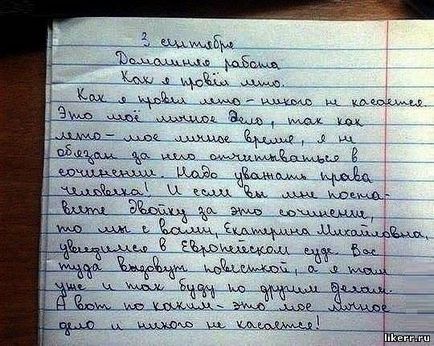 3 сентября
Домашняя работа
Как я провёл лето.
Как я провёл лето - никого не касается.
Это моё личное дело, так как
лето - мое личное время, я не
обязан за него отчитываться в
сочинении. Надо уважать права
человека! И если вы мне поста-
вите двойку за это сочинение,
то мы с вами, Екатерина Михайловна,
увидимся в Европейском суде. Вас
туда вызовут повесткой, а я там
уже и так буду по другим делам.
А вот по каким - это мое личное
дело и никого не касается!
likerr.ru